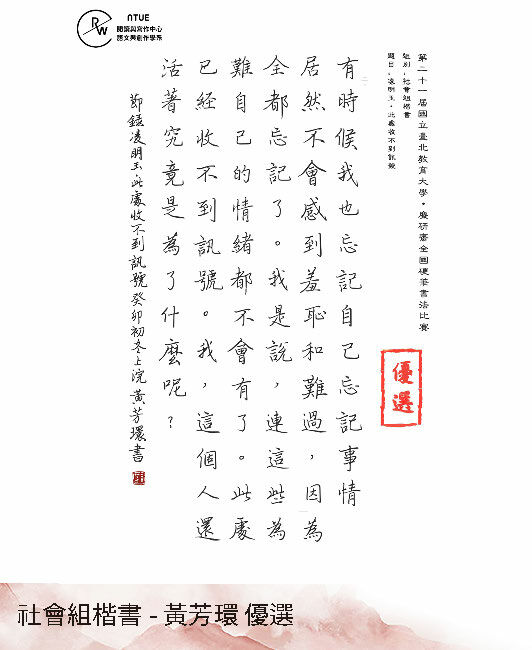 NTUE
閱讀與寫作中心
語文與創作學系
RW
第二十一屆國立臺北教育大學•廣硏齋全國硬筆書法比賽
組別：社會組楷書
題目：凌明玉•此處收不到訊號
有時候我也忘記自己忘記事情
居然不會感到羞恥和難過，因為
全都忘記了。我是說，連這些為
難自己的情緒都不會有了。此處
已經收不到訊號。我，這個人還
活著究竟是為了什麼呢？
節錄凌明玉此處收不到訊號癸卯初冬上浣黃芳環書
優選
社會組楷書 - 黃芳環 優選